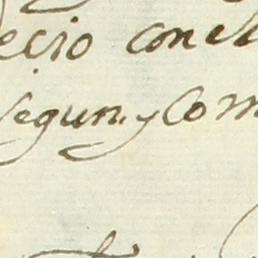 ecio con el
segun. y Com